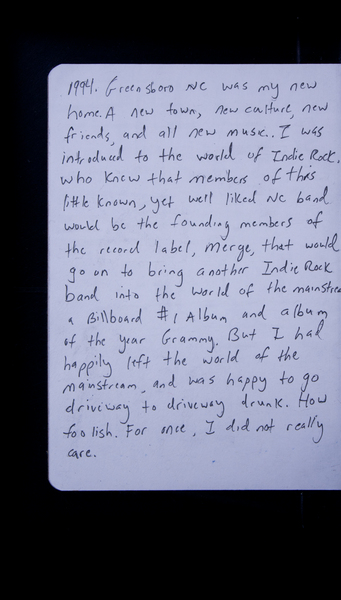 1994. Greensboro NC was my new
home. A new town, new culture, new
friends, and all new music. I was
introduced to the world of Indie Rock.
Who knew that members of this
little known, yet well liked NC band
would be the founding members of
the record label, Merge, that would
go on to bring another Indie Rock
band into the world of the mainstrea
a Billboard #1 Album and album
of the year Grammy. But I had
happily left the world of the
mainstream, and was happy to go
driveway to driveway drunk. How
foolish. For once, I did not really
care.